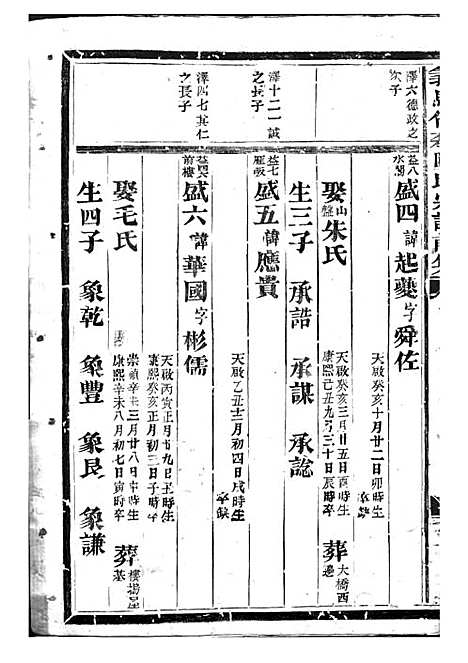 澤六德政之
次子
益八
盛四 諱起夔字舜佐
天啟癸亥十月廿二日卯時生
卒缺
娶山盤朱氏
天啟癸亥三月廿五日酉時生
康熙己丑九月三十日辰時卒
葬大橋西邊
生三子 承誥 承謀 承諗
澤十二一誠
之長子
益七
盛五 諱應貴
天啟乙丑十二月初四日戌時生
卒缺
澤四七其仁
之長子
前樓
盛六 諱華國字彬儒
天啟丙寅正月廿九日丑時生
康熙癸亥正月初三日子時卒
娶毛氏
崇禎辛未三月廿八日申時生
康熙辛未八月初七日寅時卒
葬
生四子 象乾 象豐 象艮 象謙